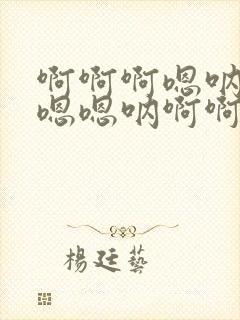 啊啊啊嗯呐
嗯嗯呐啊啊
楊廷藝